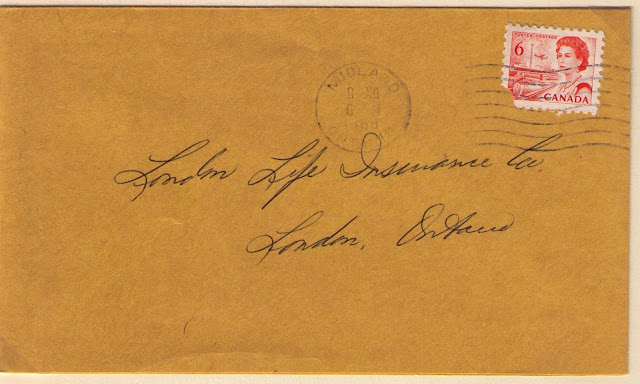 POSTES POSTAGE
6
CANADA
MIDLAND
London Life Insurance Co.
London, Ontario